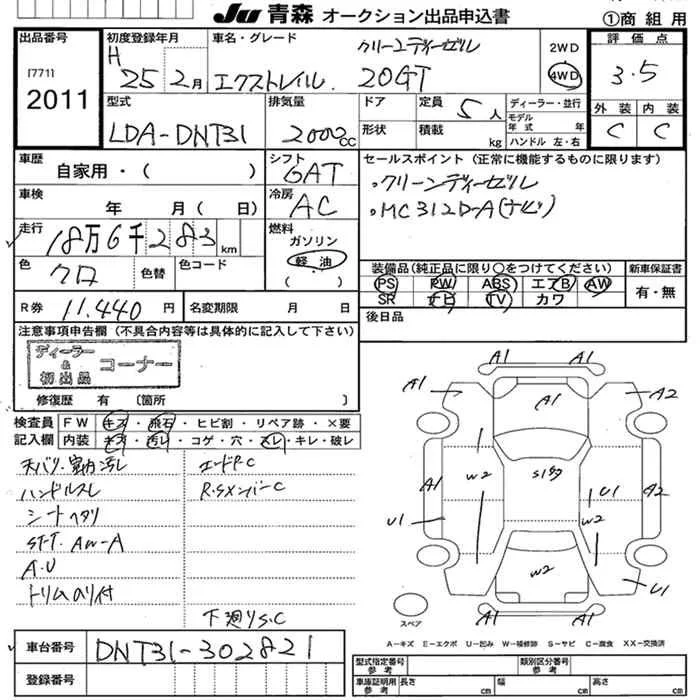 JU 青森 オークション出品申込書
①商組用
出品番号
[771]
2011
初度登録年月
H 25 2月
車名・グレード
クリーンディーゼル
エクストレイル 20GT
2WD
4WD
評価点
3.5
外装 内装
C C
型式
LDA-DNT31
排気量
2000cc
ドア
形状
定員 5人
積載 kg
ディーラー・並行
モデル年式 年
ハンドル 左・右
車歴
自家用・( )
シフト
6AT
車検
年 月( 日)
冷房
AC
走行
18万6千283km
燃料
ガソリン
軽油
( )
色
クロ
色替
色コード
セールスポイント(正常に機能するものに限ります)
・クリーンディーゼル
・MC312D-A(ナビ)
装備品(純正品に限り○をつけてください)
PS PW ABS エアB AW
SR ナビ TV カワ
新車保証書
有・無
R券 11,440円
名変期限 月 日
後日品
注意事項申告欄(不具合内容等は具体的に記入して下さい)
ディーラー & 初出品 コーナー
修復歴 有 〔箇所 〕
検査員記入欄
FW キズ・飛石・ヒビ割・リペア跡・×要
内装 キズ・汚レ・コゲ・穴・スレ・キレ・破レ
ハンドルスレ
シートヘタリ
ST.T. AW-A
A.U
トリムのり付
エードPC
R.SメンバーC
下廻りS.C
A1 A1
A1 A1 A2
A1 W2 S1 U1 A2
U1 W2
W2 U1
スペア
A-キズ E-エクボ U-凹み W-補修跡 S-サビ C-腐食 XX-交換済
車台番号
DNT31-302821
登録番号
型式指定番号 参考
類別区分番号 参考
車庫証明用 参考
長さ cm 幅 cm 高さ cm